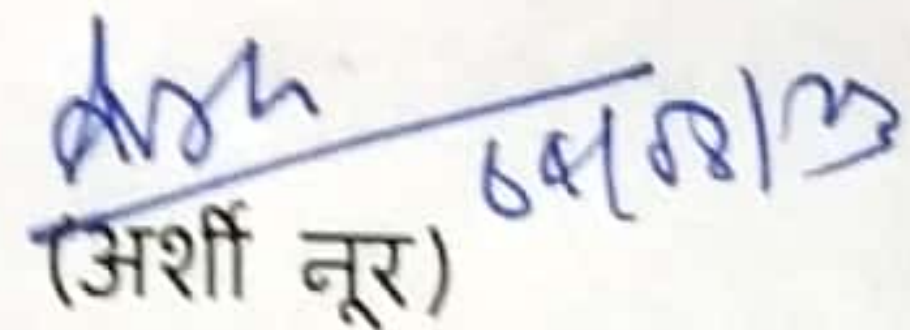 04/08/23
(अर्शी नूर)